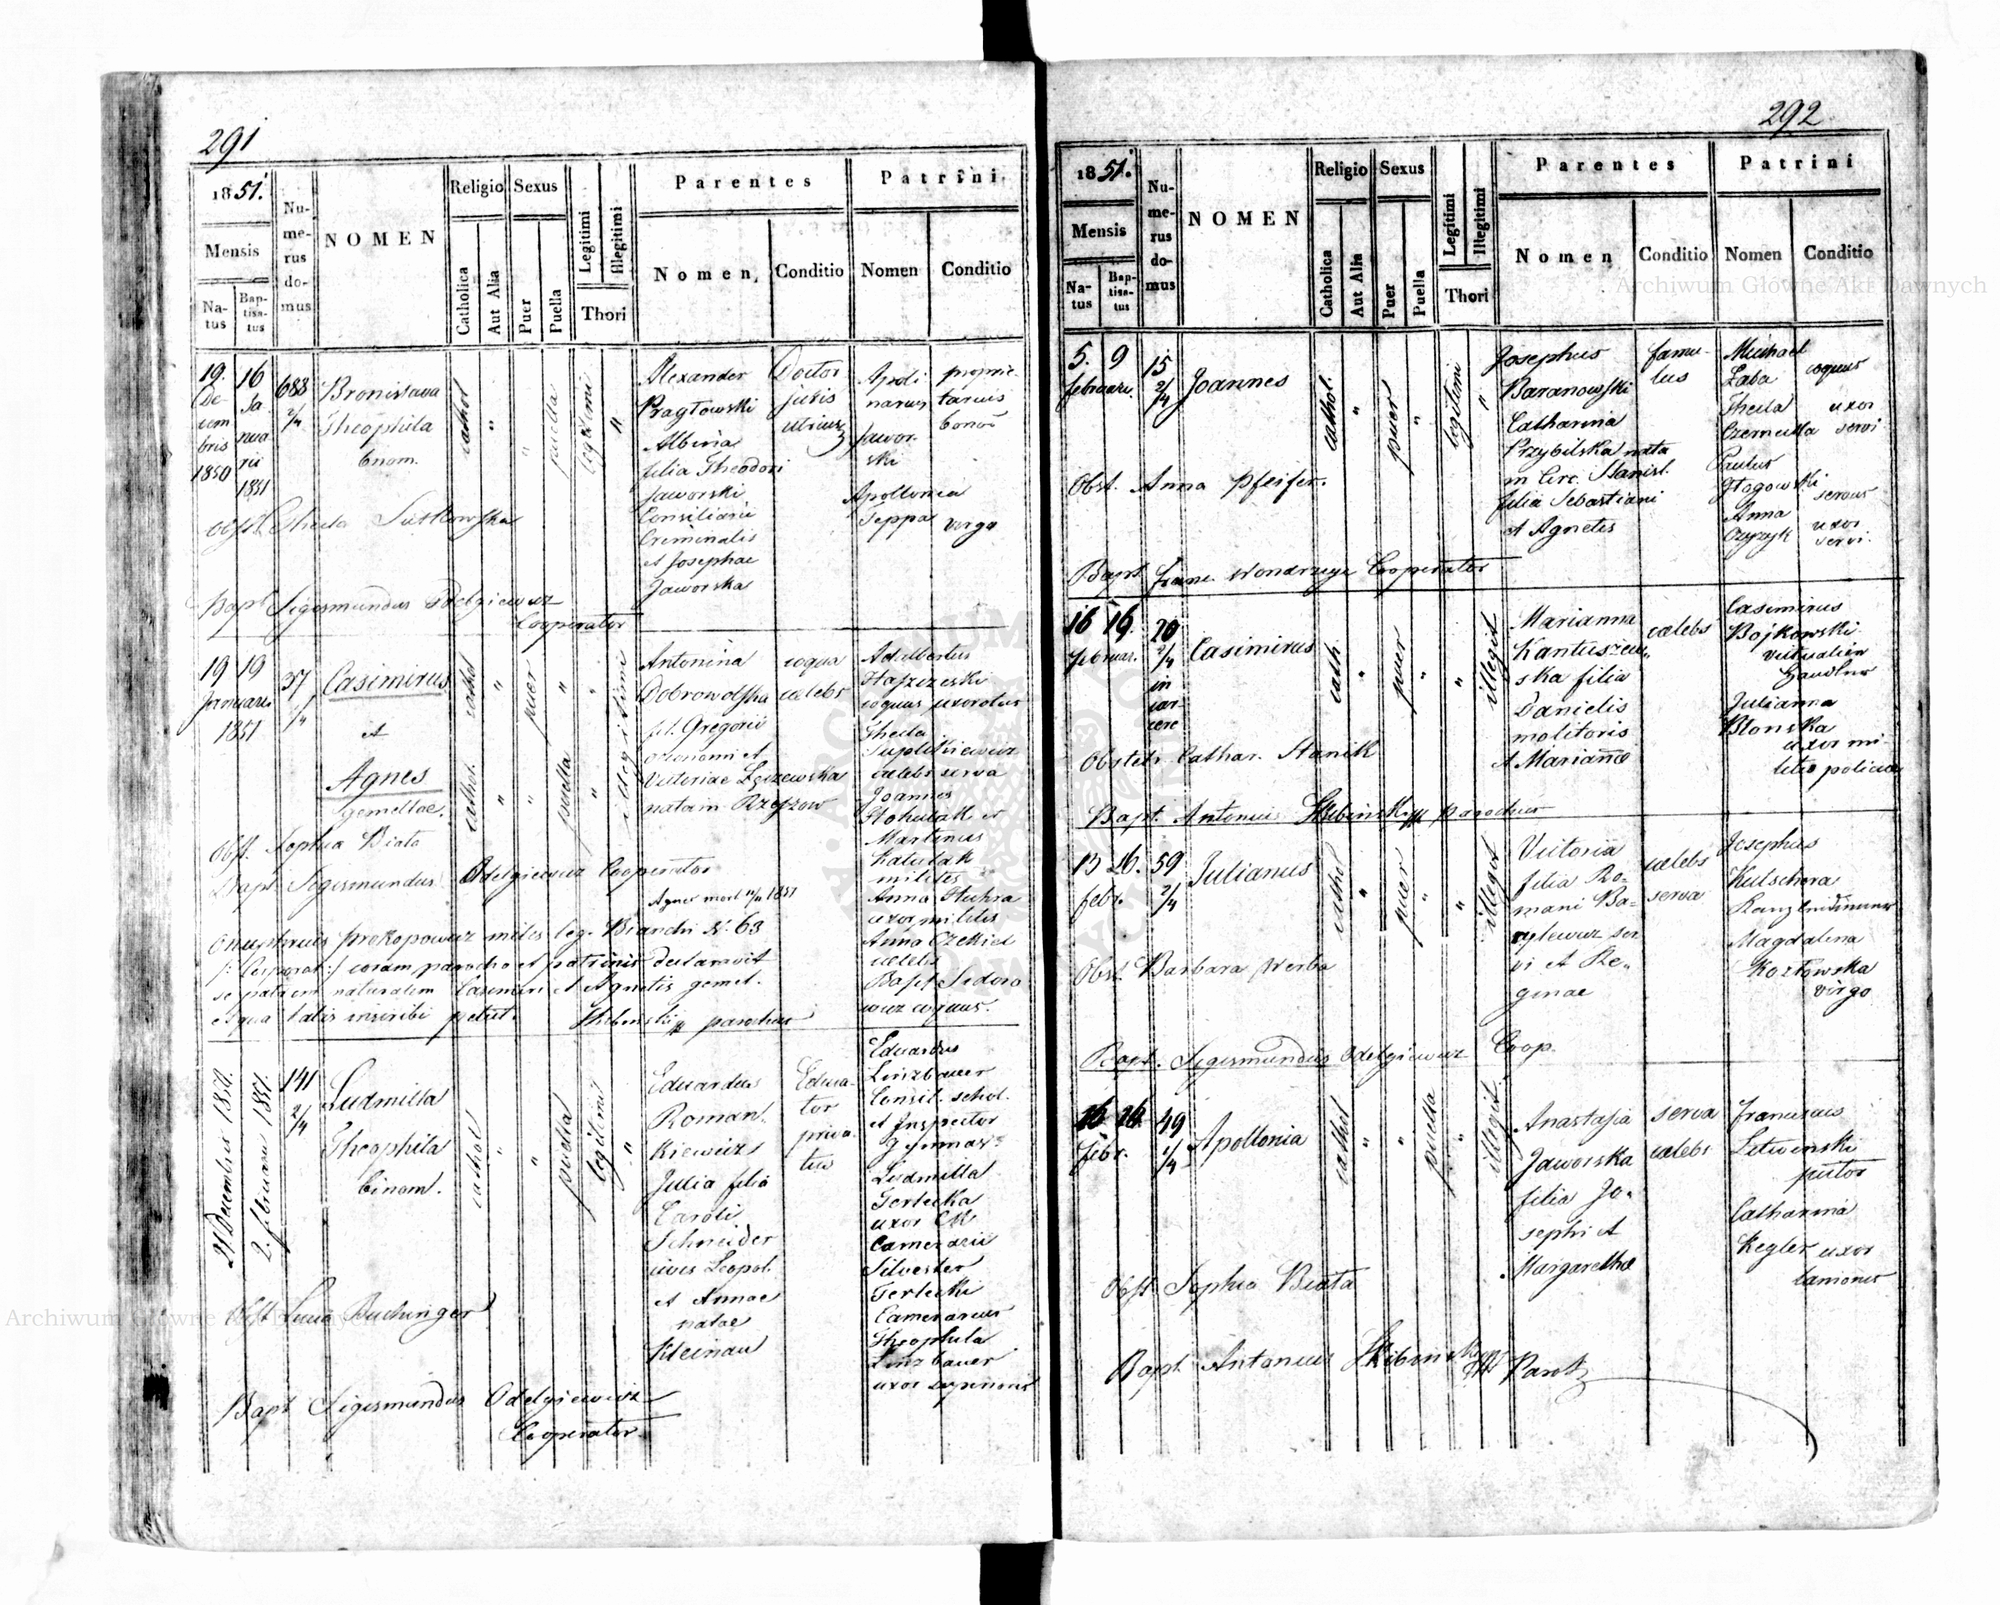 291
1851.
Mensis
Natus
Baptisatus
Numerus domus
NOMEN
Religio
Catholica
Aut Alia
Sexus
Puer
Puella
Legitimi
Illegitimi
Thori
Parentes
Nomen,
Conditio
Patrini
Nomen
Conditio
19.
De-
cem
bris
1850
16
Ja
nua
rii
1851
688
2/4
Bronislava
Theophila
binom.
cathol
"
"
puella
legitimi
"
Alexander
Pragłowski
Albina
filia Theodori
Jaworski
Consiliarii
Criminalis
et Josephae
Jaworska
Doctor
juris
Apoli
narius
Jawor-
ski
Apollonia
Seppa
proprie-
tarius
virgo
Bapt Sigismundus Odelgiewicz
Cooperator
19 19
Januarii
1851
37
1/4
Casimirus
et
Agnes
gemellae.
cathol
"
puer
"
"
illegitimi
cathol.
"
"
puella
"
illegitimi
Antonina
Dobrowolska
fil. Gregorii
oeconomi et
Victoriae Łęczewska
natam Rzeszow
coqua
caelebs
Adalbertus
coquus uxoratus
Thecla
caelebs serva
Joannes
Martinus
milites
Anna
uxor militis
Anna Czekiel
caelebs
Bapt Sidoro
wicz coquus.
Obst. Sophia Biała
Bapt. Sigismundus Odelgiewicz Cooperator
Onuphrius Prokopowicz miles leg. Bianchi N. 63
/: Corporal :/ coram parocho et patrinis declaravit
se patrem naturalem Casimiri et Agnetis gemel.
et qua talis inscribi petiit.
parochus
21 Decembris 1850.
2. februarii 1851.
141
2/4
Ludmilla
Theophila
binom.
cathol
"
"
puella
legitimi
"
Eduardus
Roman-
kiewicz
Julia filia
Caroli
Schneider
civis Leopol.
et Annae
natae
Kleinau
Educa-
tor
priva-
tus
Eduardus
Linzbauer
Consil. schol.
et Inspector
Ludmilla
Terlecka
uxor
Camerarii
Silvester
Terlecki
Camerarius
Theophila
Linzbauer
Bapt Sigismundus Odelgiewicz
Cooperator
292
1851.
Mensis
Natus
Baptisatus
Numerus domus
NOMEN
Religio
Catholica
Aut Alia
Sexus
Puer
Puella
Legitimi
Illegitimi
Thori
Parentes
Nomen
Conditio
Patrini
Nomen
Conditio
5. 9
februarii.
15
2/4
Joannes
cathol.
"
puer
"
legitimi
"
Josephus
Baranowski
Catharina
Przybilska nata
in Circ. Stanisl.
filia Sebastiani
et Agnetis
famu-
lus
Michael
Łaba
coquus
Thecla
uxor
servi
Paulus
Głogowski
servus
Anna
uxor
servi.
Obst. Anna Pfeifer.
Bapt Franc. Wondrzeyc Cooperator
16 19.
februar.
20
2/4
in
car-
cere
Casimirus
cath
"
puer
"
"
illegit
Marianna
Kantuszew-
ska filia
Danielis
molitoris
et Marianae
caelebs
Casimirus
Bojkowski
Victualien
Handler
Julianna
Błonska
uxor mi-
litis policiae
Obstetr. Cathar. Stanik
Bapt. Antonius Skibinski parochus
13 16.
febr.
59
2/4
Julianus
cathol
"
puer
"
"
illegit
Victoria
filia Ro-
mani Ba-
rylewicz ser
vi et Re-
ginae
caelebs
serva
Josephus
Kutschera
Kanzleidiener
Magdalena
Kozłowska
virgo
Obst. Barbara Werba
Bapt. Sigismundus Odelgiewicz Coop.
16 16.
febr.
49
1/4
Apollonia
cathol
"
"
puella
"
illegit
Anastasia
Jaworska
filia Jo-
sephi et
Margarethae
serva
caelebs
Franciscus
Letwinski
pictor
Catharina
Kegler uxor
lanionis
Obst Sophia Biała
Bapt Antonius Skibinski Paroch
Archiwum Główne Akt Dawnych